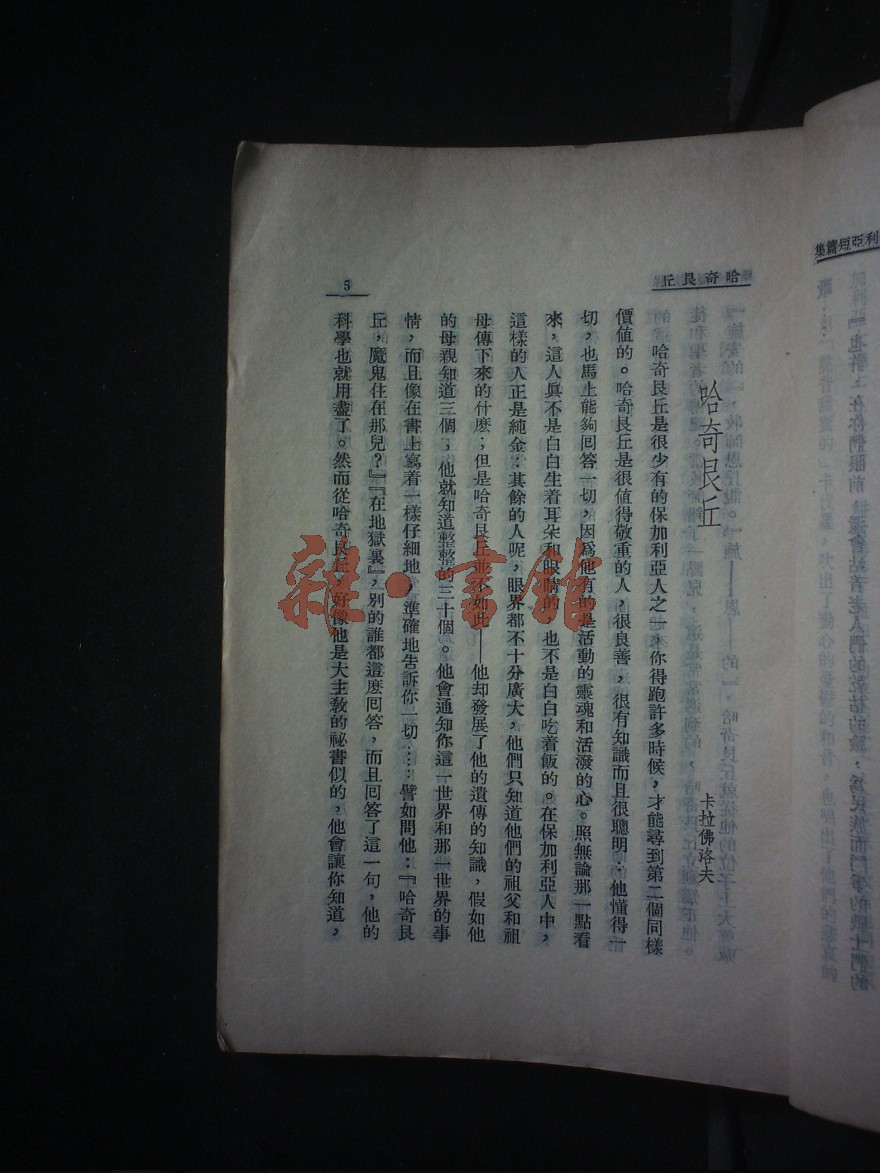 利亞短篇集
哈奇艮丘
哈奇艮丘
卡拉佛洛夫
哈奇艮丘是很少有的保加利亞人之一，你得跑許多時候，才能尋到第二個同樣
價值的。哈奇艮丘是很值得敬重的人，很良善，很有知識而且很聰明：他懂得一
切，也馬上能夠回答一切，因爲他有的是活動的靈魂和活潑的心。照無論那一點看
來，這人眞不是白白生着耳朵和眼睛的，也不是白白吃着飯的。在保加利亞人中，
這樣的人正是純金：其餘的人呢，眼界都不十分廣大，他們只知道他們的祖父和祖
母傳下來的什麽；但是哈奇艮丘並不如此——他却發展了他的遺傳的知識，假如他
的母親知道三個，他就知道整整的三十個。他會通知你這一世界和那一世界的事
情，而且像在書上寫着一樣仔細地、準確地告訴你一切……譬如問他：『哈奇艮
丘，魔鬼住在那兒？』『在地獄裏』，別的誰都這麽回答，而且回答了這一句，他的
科學也就用盡了。然而從哈奇艮丘，好像他是大主敎的祕書似的，他會讓你知道，
5
雜·書館